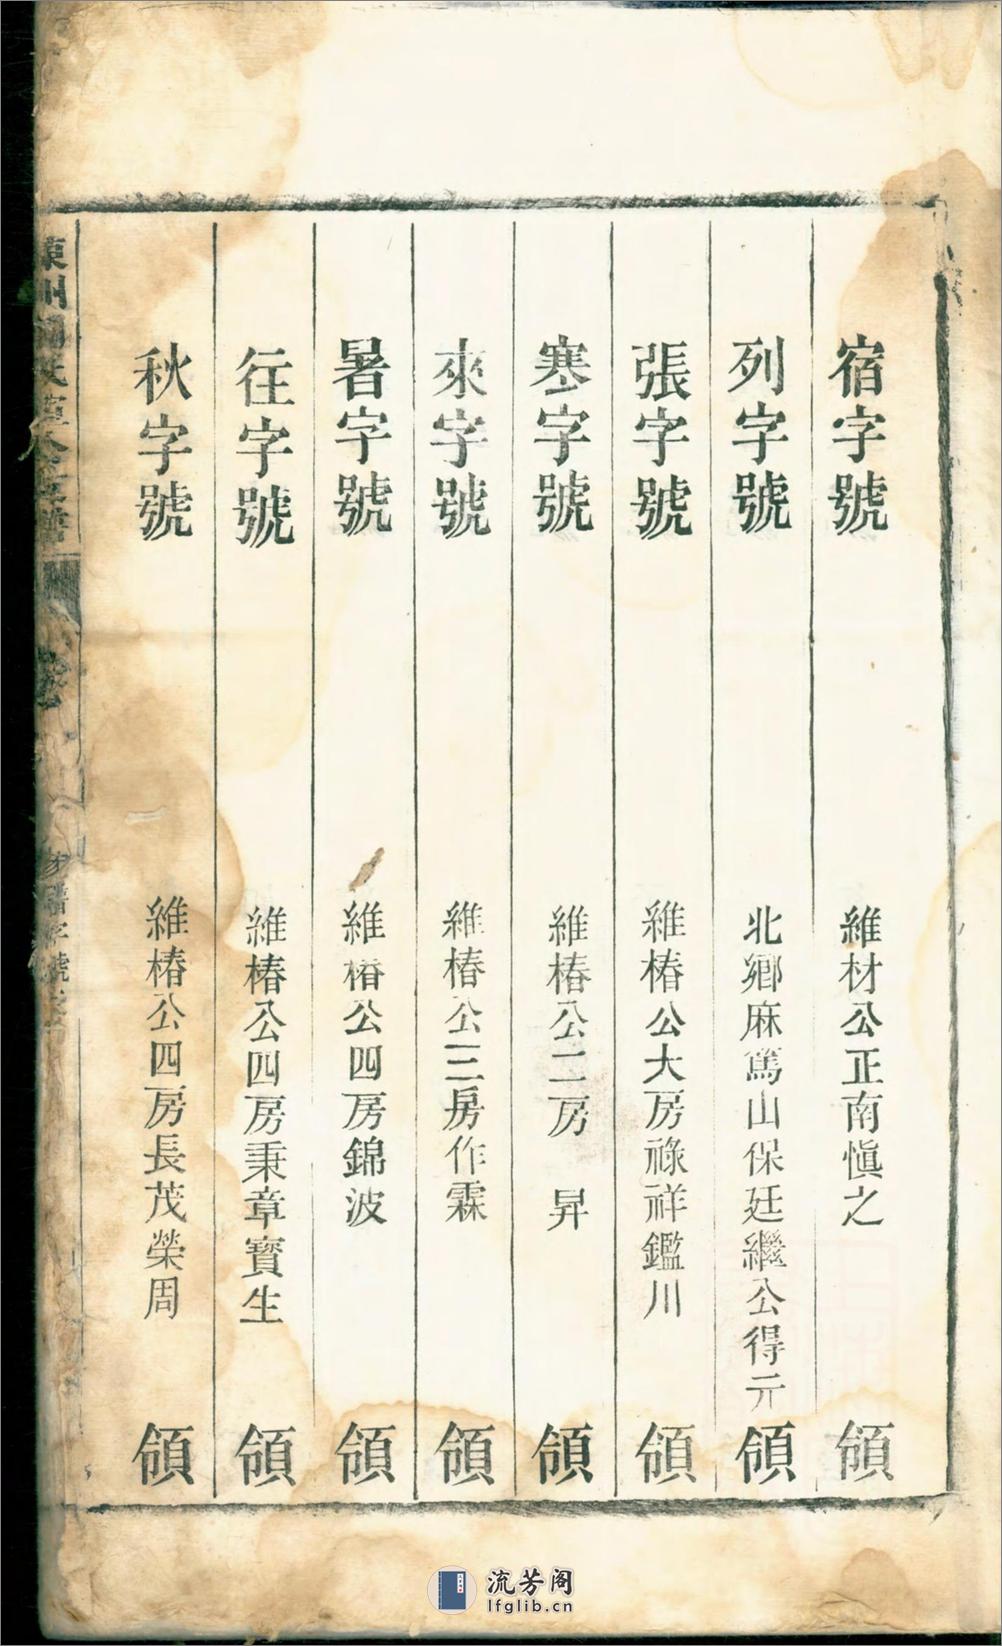 宿字號 維材公正南慎之 領
列字號 北鄉麻篤山保廷繼公得元 領
張字號 維椿公大房祿祥鑑川 領
寒字號 維椿公二房 昇 領
來字號 維椿公三房作霖 領
暑字號 維椿公四房錦波 領
往字號 維椿公四房秉章寶生 領
秋字號 維椿公四房長茂榮周 領
流芳阁
lfglib.cn